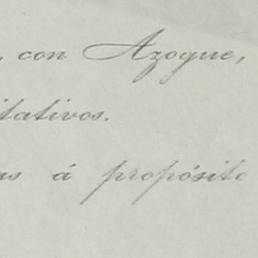 , con Azogue,
itativos.
as á propósito